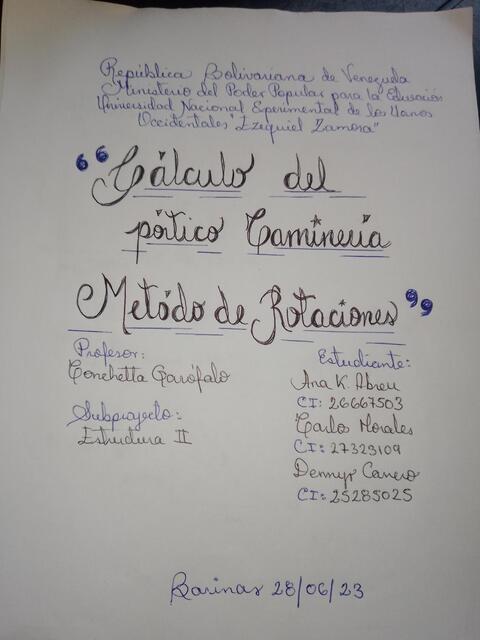 República Bolivariana de Venezuela
Ministerio del Poder Popular para la Educación
Universidad Nacional Experimental de los Llanos
Occidentales "Ezequiel Zamora"
"Cálculo del
pórtico Caminería
Metódo de Rotaciones"
Profesor:
Conchetta Garófalo
Subproyecto:
Estructura II
Estudiante:
Ana K. Abreu
CI: 26667503
Carlos Morales
CI: 27323109
Dennyr Canero
CI: 25285025
Barinas 28/06/23